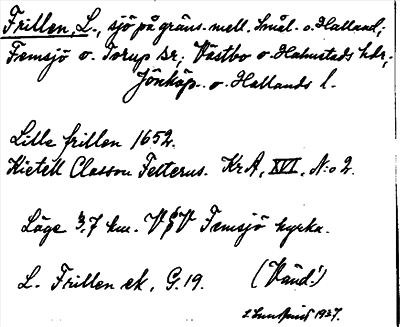 Frillen, L., sjö på gräns. mell. Smål. o. Halland;
Femsjö o. Torup sr; Västbo o. Halmstads hdr;
Jönköp. o. Hallands l.
Lille frillen 1652.
Kietell Classon Fetterus. KrA, XVI, N:o 2.
Läge 3,7 km. V t V Femsjö kyrka.
L. Frillen ek. G.19. (Vänd!)
1937.